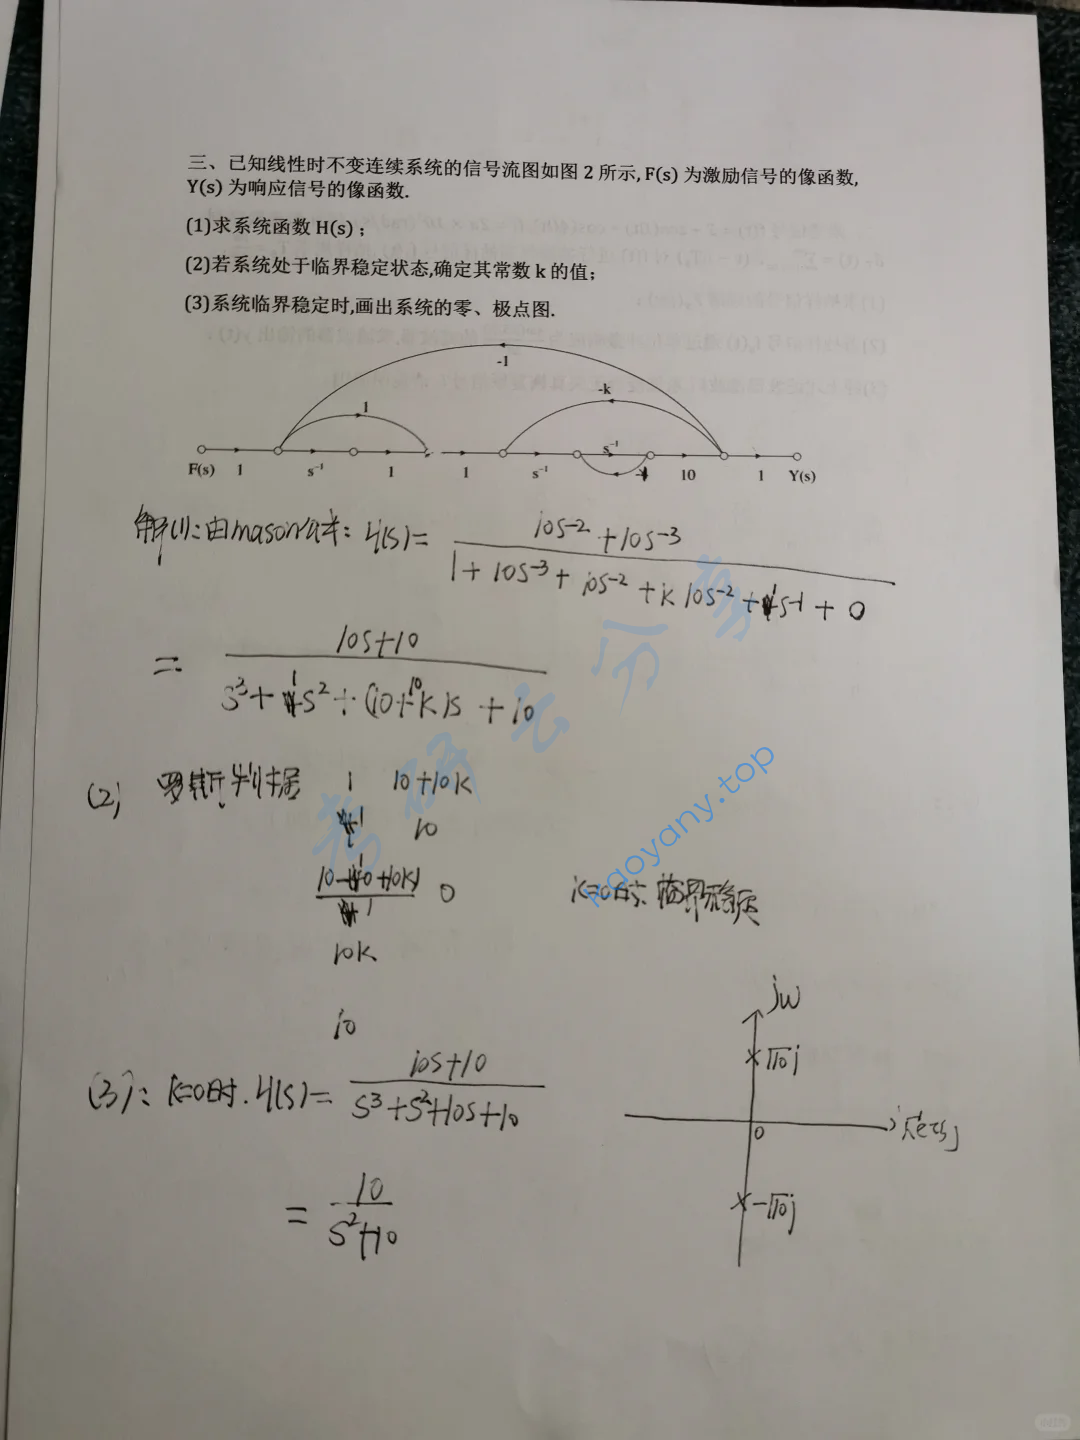 三、已知线性时不变连续系统的信号流图如图 2 所示, F(s) 为激励信号的像函数,
Y(s) 为响应信号的像函数.
(1)求系统函数 H(s) ;
(2)若系统处于临界稳定状态,确定其常数 k 的值;
(3)系统临界稳定时,画出系统的零、极点图.
-1
1
-k
s⁻¹
F(s) 1 s⁻¹ 1 1 s⁻¹ 10 1 Y(s)
解(1):由mason公式: H(s)= (10s⁻²+10s⁻³)/(1+10s⁻³+10s⁻²+k10s⁻²+1s⁻¹+0)
= (10s+10)/(s³+1s²+(10+10k)s+10)
(2) 罗斯判据 1 10+10k
1 10
0 k=0时:临界稳定
10k
10
(3): k=0时. H(s)= (10s+10)/(s³+s²+10s+10)
= 10/(s²+10)
jw
√10j
0 Re[s]
-√10j
考研云分享
kaoyany.top